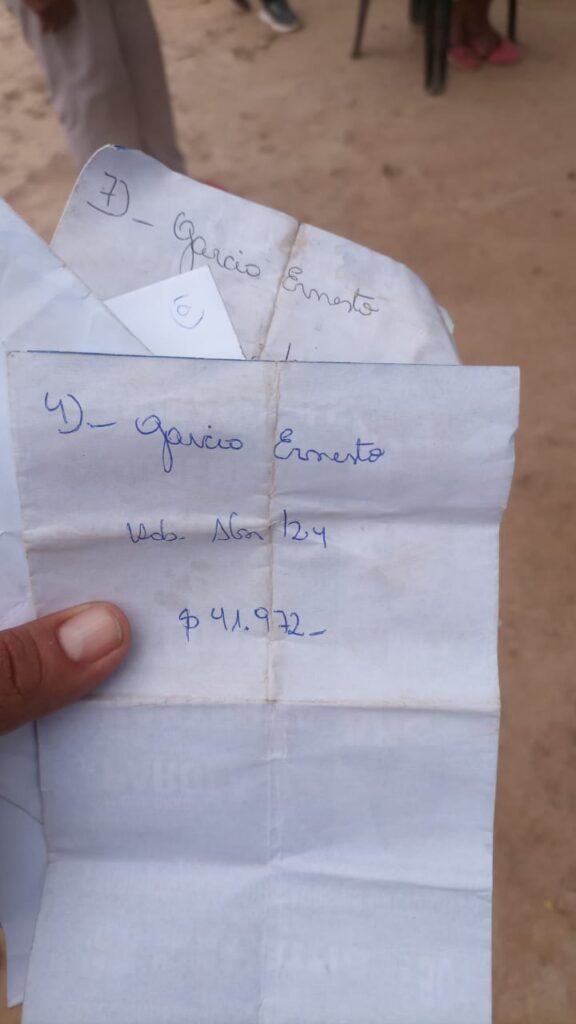 7)- Garcia Ernesto
4)- Garcia Ernesto
Abr /24
$ 41.972-